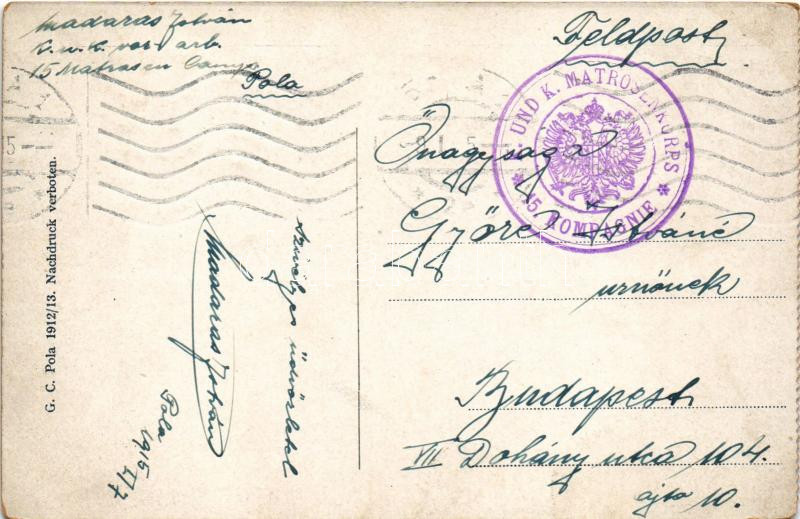 Madaras István
K. u. K. vor. arb.
15 Matrosen Comp.
Pola
Feldpost
UND K. MATROSENKORPS
* 15 KOMPAGNIE *
Önagysága
Győre Istvánné
urnőnek
Budapest
VII Dohány utca 104.
ajtó 10.
Szivélyes üdvözlettel
Madaras István
Pola
1915 I/7
G. C. Pola 1912/13. Nachdruck verboten.